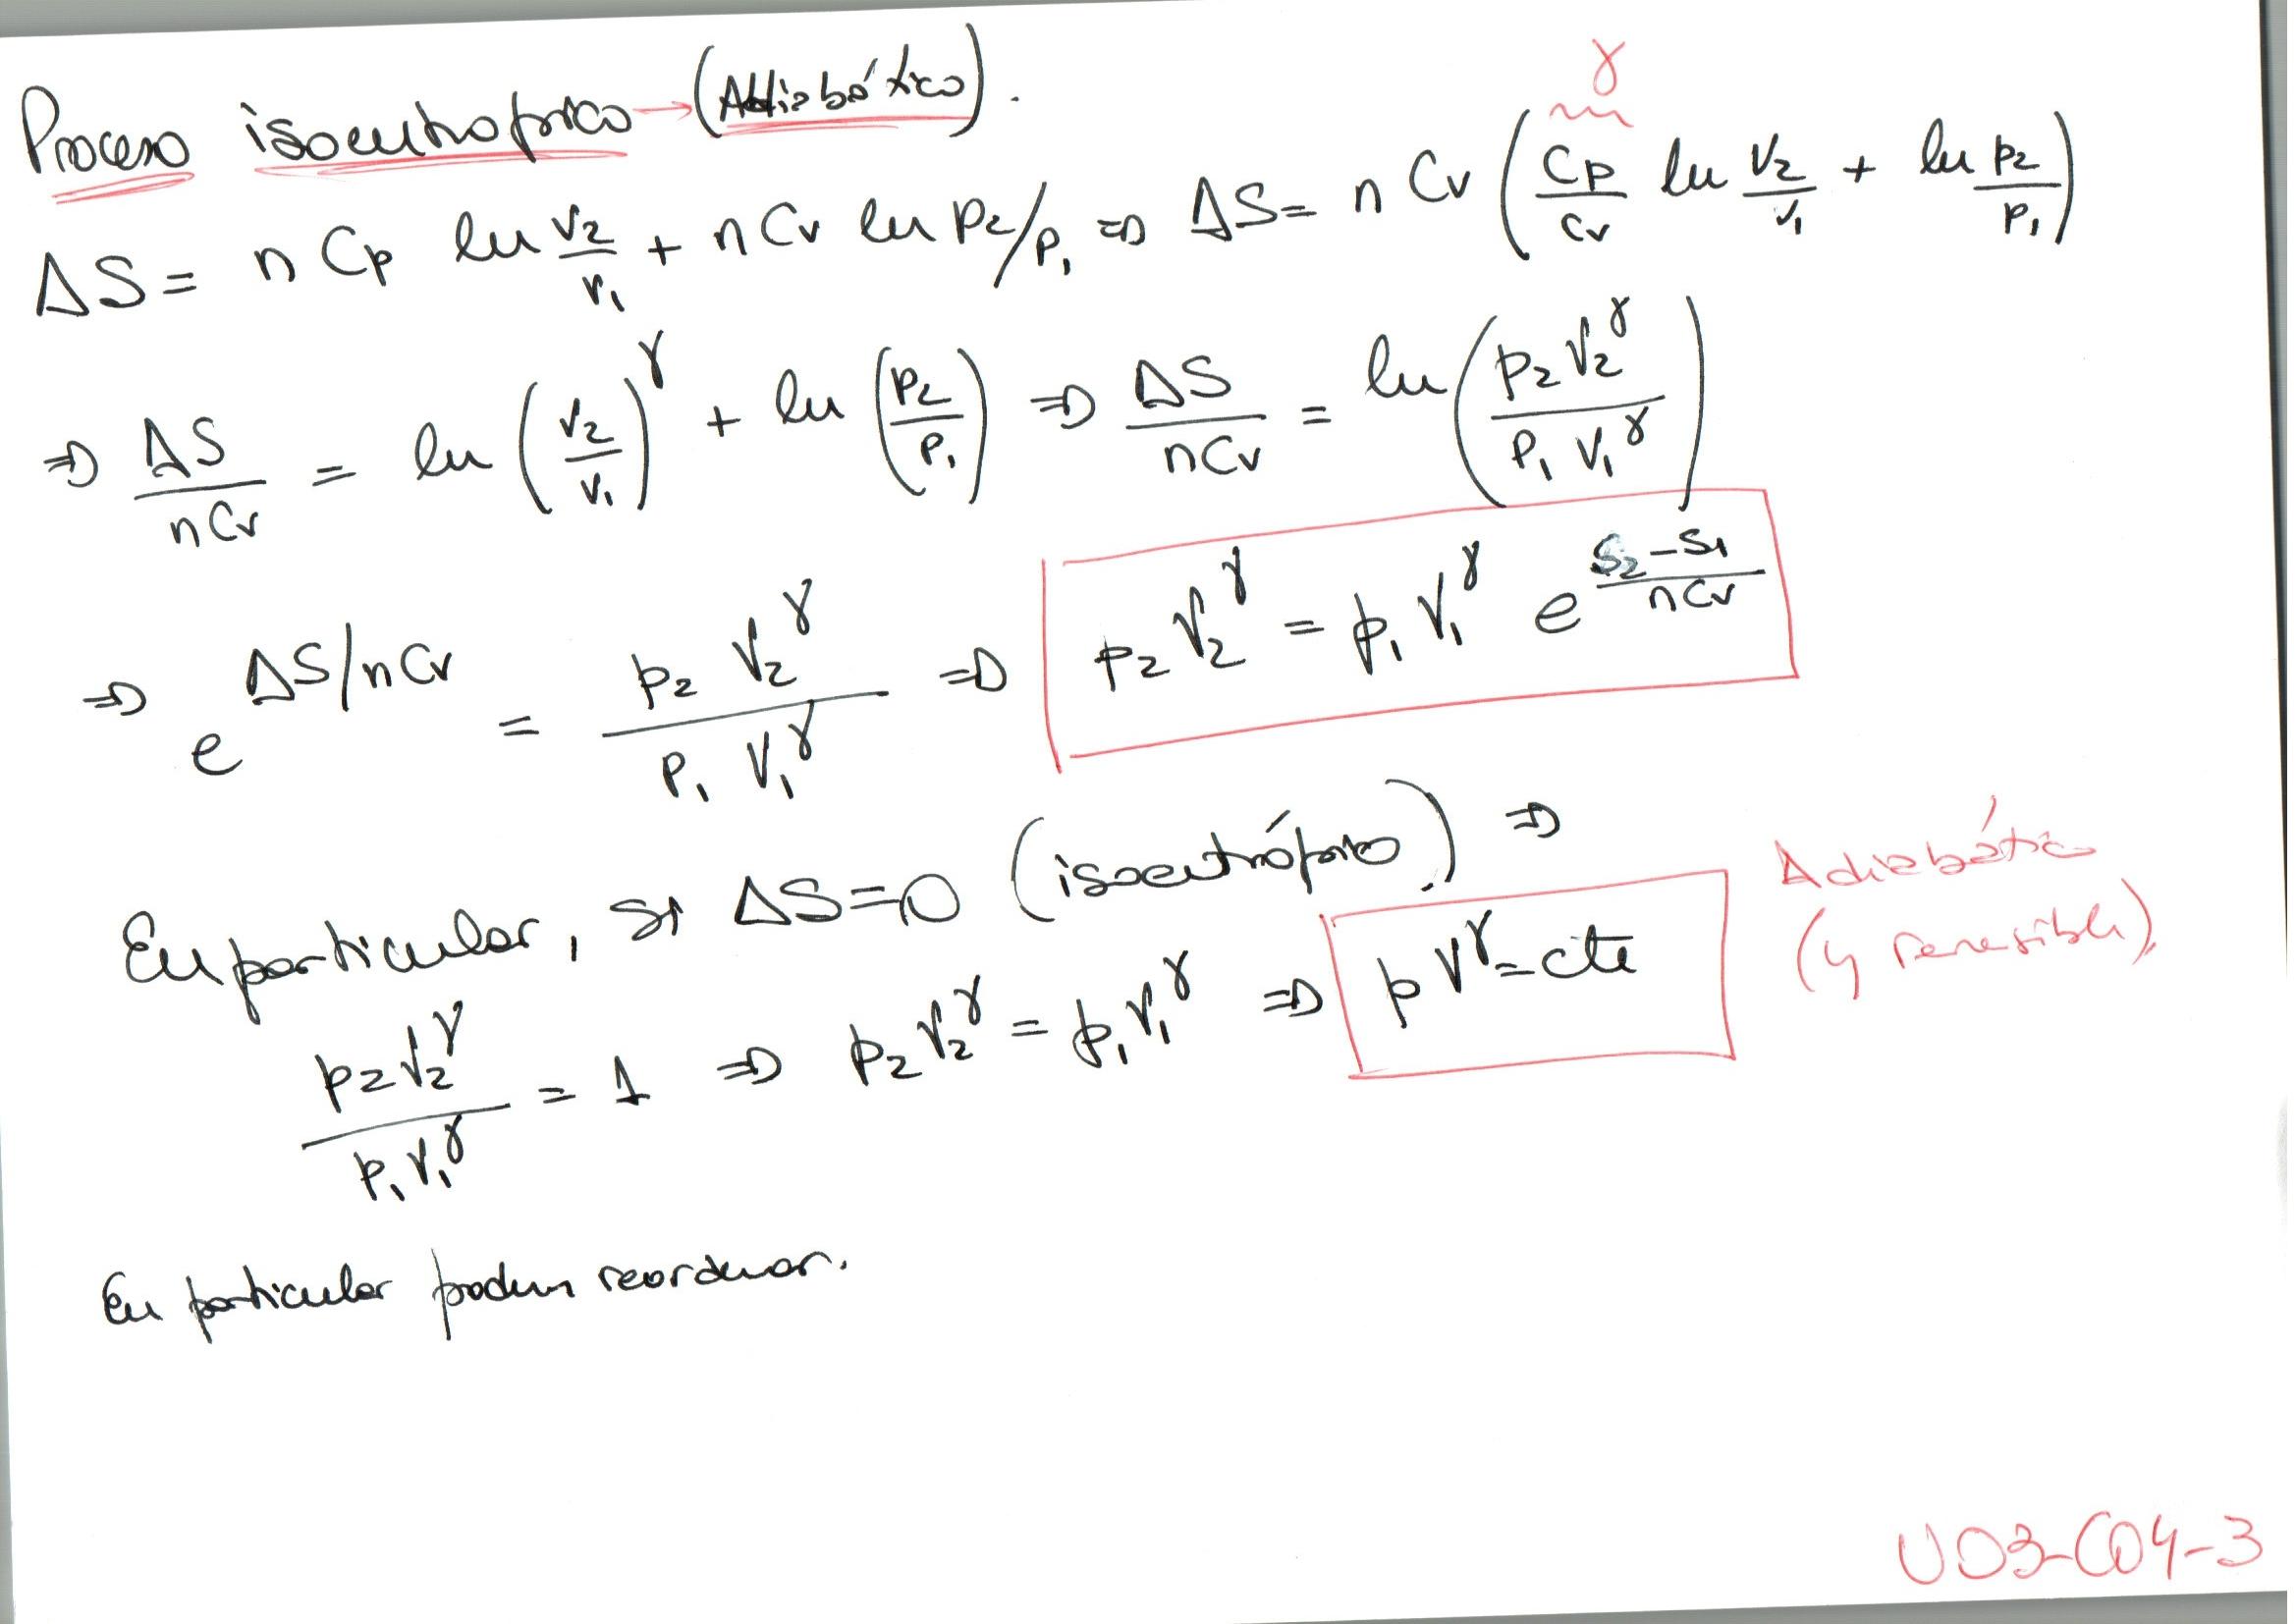 Proceso isoentrópico → (Adiabático).
γ
ΔS = n Cp ln V2/V1 + n Cv ln P2/P1 ⇒ ΔS = n Cv (Cp/Cv ln V2/V1 + ln P2/P1)
⇒ ΔS/nCv = ln (V2/V1)^γ + ln (P2/P1) ⇒ ΔS/nCv = ln (P2 V2^γ / P1 V1^γ)
⇒ e^(ΔS/nCv) = P2 V2^γ / P1 V1^γ ⇒ P2 V2^γ = P1 V1^γ e^((S2-S1)/nCv)
En particular, si ΔS=0 (isoentrópico) ⇒
P2 V2^γ / P1 V1^γ = 1 ⇒ P2 V2^γ = P1 V1^γ ⇒ p V^γ = cte
Adiabático
(y reversible)
En particular podem reordenar.
UD3-C04-3